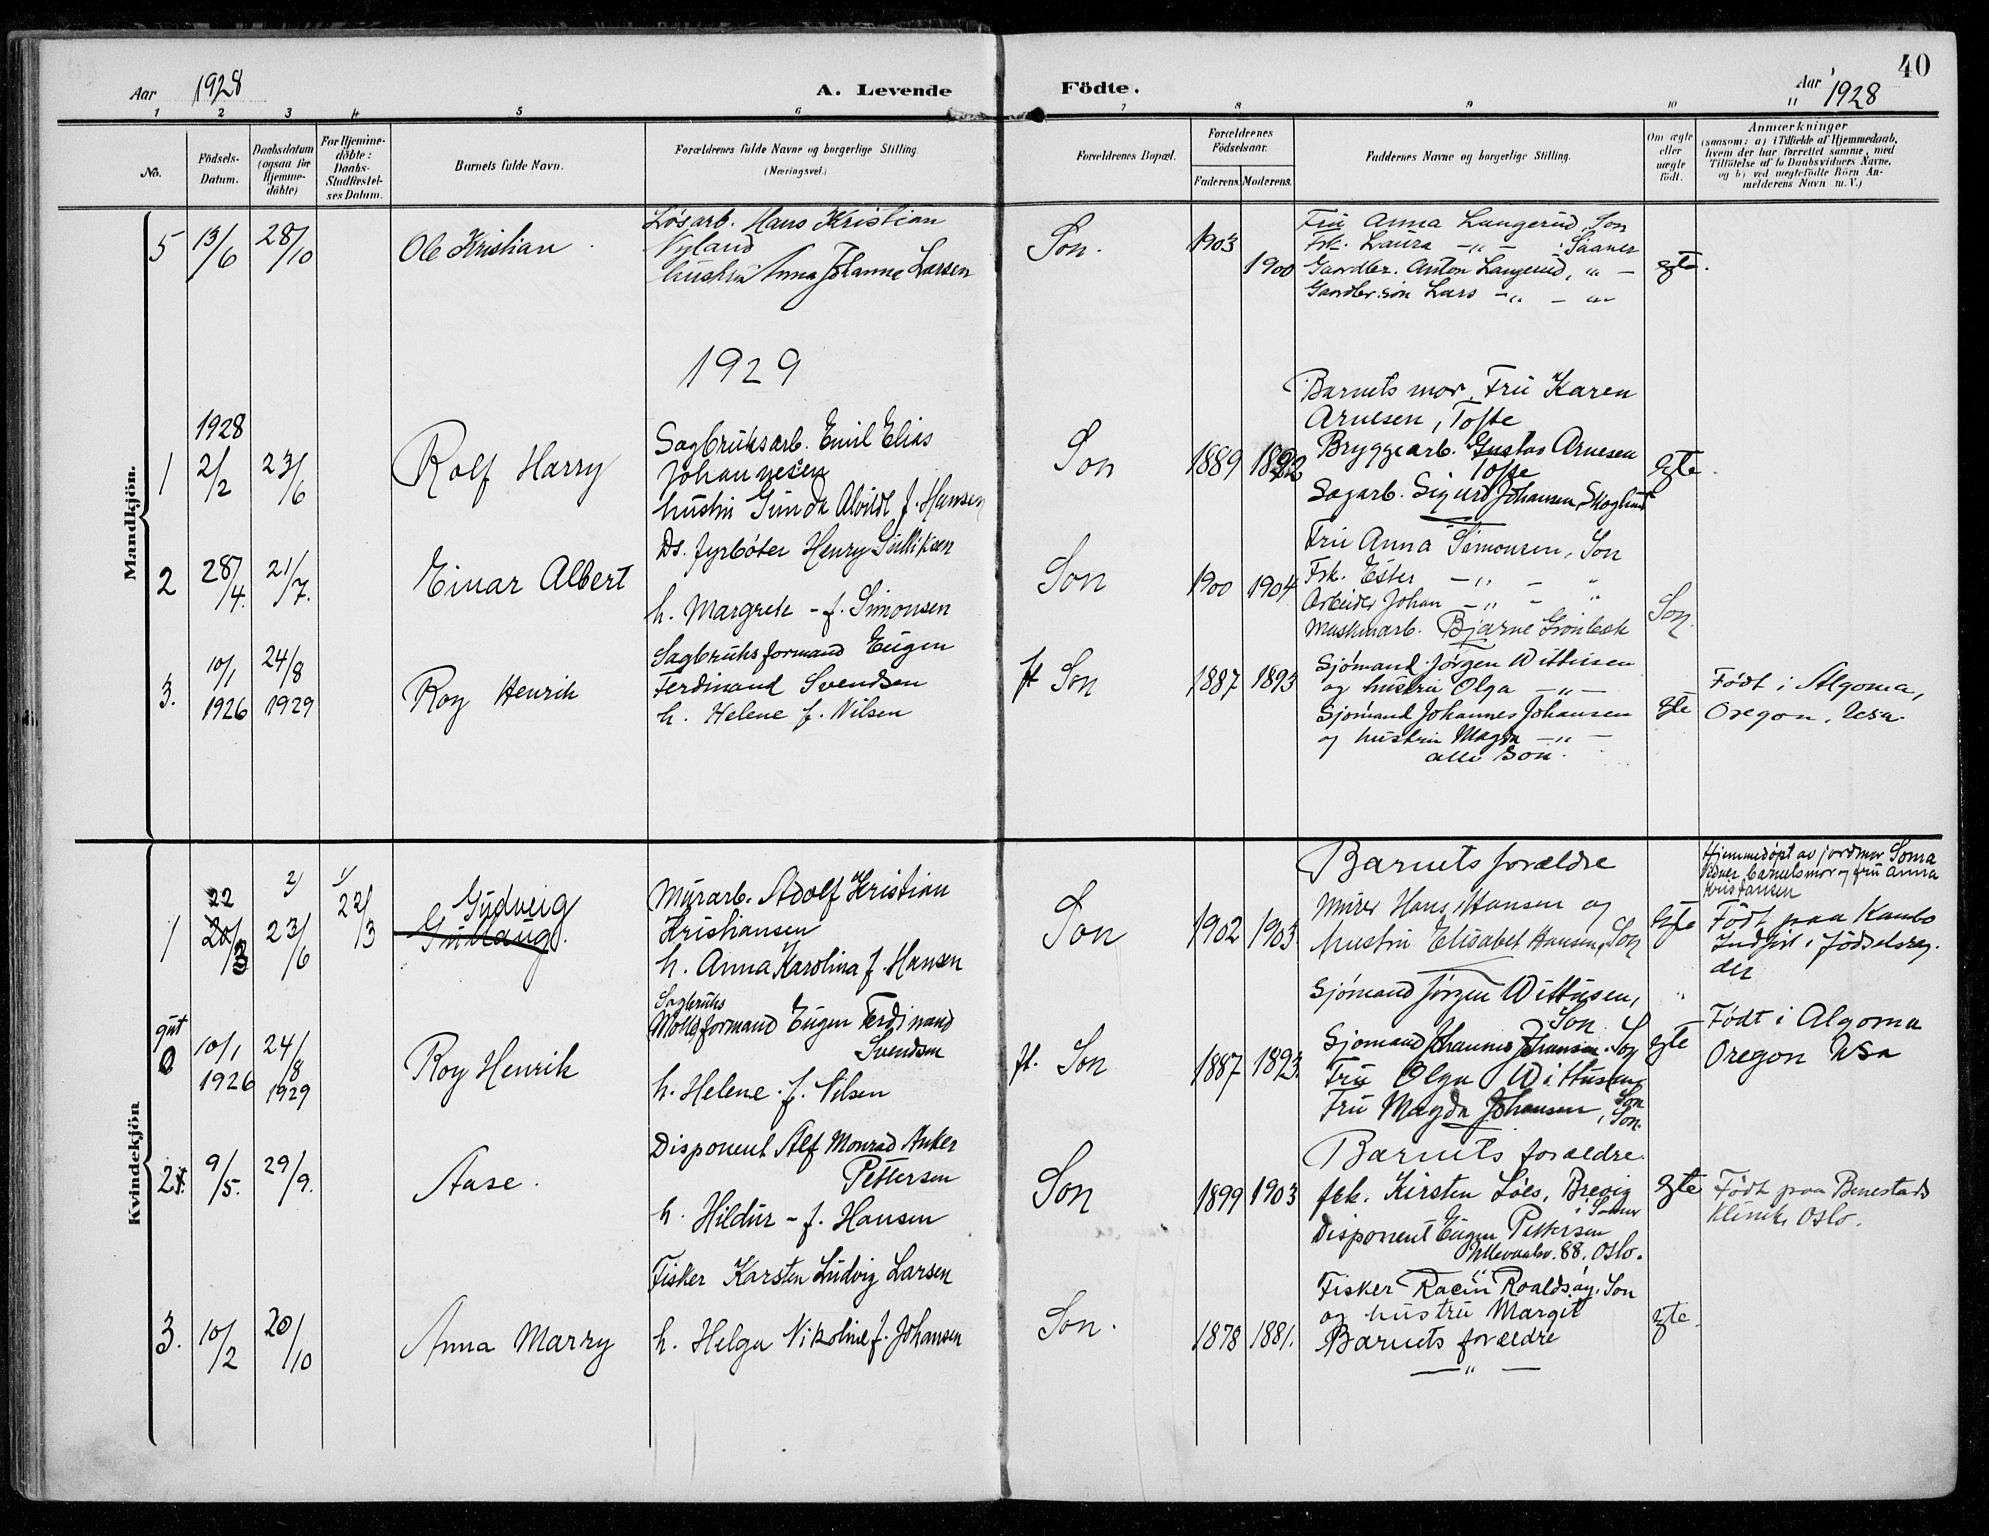 40
Aar 1928
A. Levende Födte.
Aar 1928
1 2 3 4 5 6 7 8 9 10 11
No.
Födsels-Datum.
Daabsdatum (ogsaa för Hjemme-döbte)
For Hjemme-döbte: Daabs-Stadfæstel-ses Datum.
Barnets fulde Navn.
Forældrenes fulde Navne og borgerlige Stilling. (Næringsvei.)
Forældrenes Bopæl.
Forældrenes Födselsaar.
Faderens. Moderens.
Faddernes Navne og borgerlige Stilling.
Om ægte eller uægte födt.
Anmærkninger
(saasom: a) i Tilfælde af Hjemmedaab, hvem der har forrettet samme, med Tilföielse af to Daabsvidners Navne, og b) ved uægtefödte Börn An-melderens Navn m. V.)
Mandkjön.
5 13/6 28/10 Ole Kristian
Løsarb. Hans Kristian
Nyland
hustru Anna Johanne Larsen
Son. 1903 1900
Fru Anna Langerud, Son
Frk. Laura -"- Saaner
Gaardbr. Anton Langerud, " -
Gaardbr.søn Lars -"- "
ægte.
1929
1928
1 2/2 23/6 Rolf Harry
Sagbruksarb. Emil Elias
Johannesen
hustru Gunda Alvilde f. Hansen
Son 1889 1892
Barnets mor, Fru Karen
Arnesen, Tofte
Bryggearb. Gustav Arnesen
Tofte
Sagarb. Sigurd Johansen, Skoglund
ægte.
2 28/4. 21/7. Einar Albert
Ds. fyrbøter Henry Gulliksen
h. Margrete - f. Simonsen
Son 1900 1904
Fru Anna Simonsen, Son
Frk. Ester -"- "
Arbeider Johan -"- "
Maskinarb. Bjarne Grønbæk
Son.
3. 10/1 1926 24/8 1929 Roy Henrik
Sagbruksformand Eugen
Ferdinand Svendsen
h. Helene f. Nilsen
ft Son 1887 1893
Sjømand Jørgen Wittusen
og hustru Olga -"-
Sjømand Johannes Johansen
og hustru Magda -"-
alle Son.
ægte
Født i Algoma,
Oregon, Usa.
Kvindekjön
1 22 20/3 2/ 23/6 1/ 22/3
Gudveig
Gunlaug.
Murarb. Adolf Kristian
Kristiansen
h. Anna Karolina f. Hansen
Son 1902 1903.
Barnets forældre
Murer Hans Hansen og
hustru Elisabet Hansen, Son
ægte
Hjemmedøpt av jordmor Soma
barnets mor og fru Anna
Kristiansen
Født paa Kambo
Indført i fødselsreg.
der
gut
0 10/1 1926 24/8 1929 Roy Henrik
Sagbruks
formand Eugen Ferdinand
Svendsen
h. Helene. f. Nilsen
ft. Son 1887 1893.
Sjømand Jørgen Wittusen,
Son
Sjømand Johannes Johansen. Son
Fru Olga Wittusen,
Son
Fru Magda Johansen, Son.
"
ægte
Født i Algoma
Oregon Usa
2. 9/5. 29/9. Aase.
Disponent Alf Monrad Anker
Pettersen
h. Hildur - f. Hansen
Son 1899 1903
Barnets forældre.
frk. Kirsten Løes, Brevig
i Saaner
Disponent Eugen Pettersen
Ullevaalsv. 88. Oslo.
ægte
Født paa Benestads
Klinik, Oslo.
3. 10/2 20/10 Anna Marry
Fisker Karsten Ludvig Larsen
h. Helga Nikoline f. Johansen
Son. 1878 1881.
Fisker Racin Roaldsøy. Son
og hustru Margit
Barnets forældre
-"-
ægte.